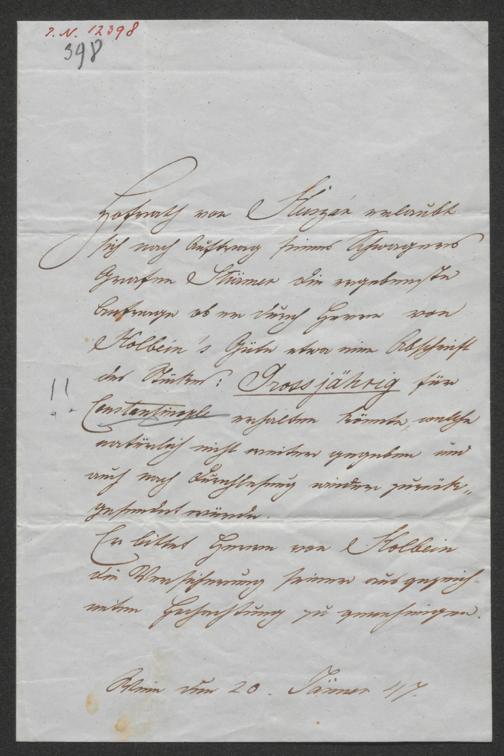 I. N. 12398
398
Hofrath von Kluzan erlaubt
sich nach Auftrag seines Schwagers
Grafen Stürmer die ergebenste
Anfrage ob er durch Herrn von
Holbein's Güte etwa eine Abschrift
des Stückes: Grossjährig für
!! Constantinopel erhalten könnte, welche
natürlich nicht weiter gegeben und
auch nach Durchlesung wieder zurück„
gesendet würde.
Er bittet Herrn von Holbein
die Versicherung seiner ausgezeich-
neten Hochachtung zu genehmigen.
Wien den 20. Jänner 47.